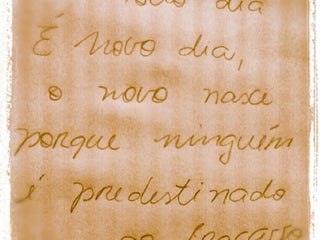 dia
É novo dia,
o novo nasce
porque ninguém
é predestinado
ao fracasso